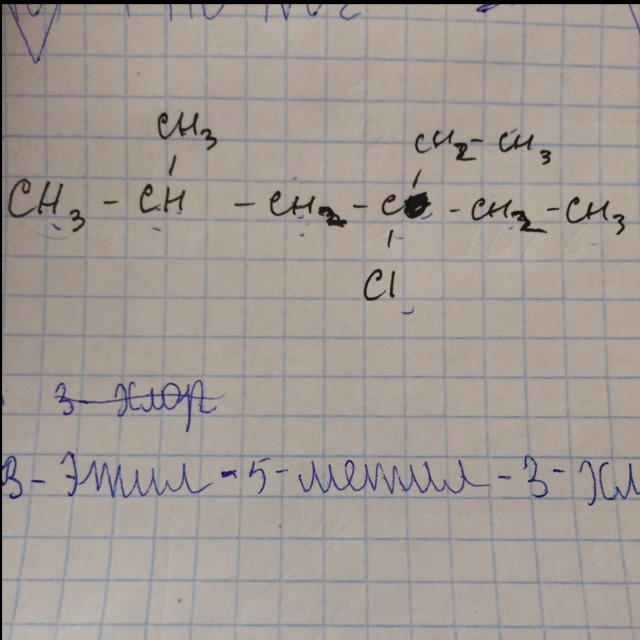 CH3 CH2-CH3
CH3 - CH - CH2 - C - CH2 - CH3
Cl
3-хлор
3-Этил-5-метил-3-хл